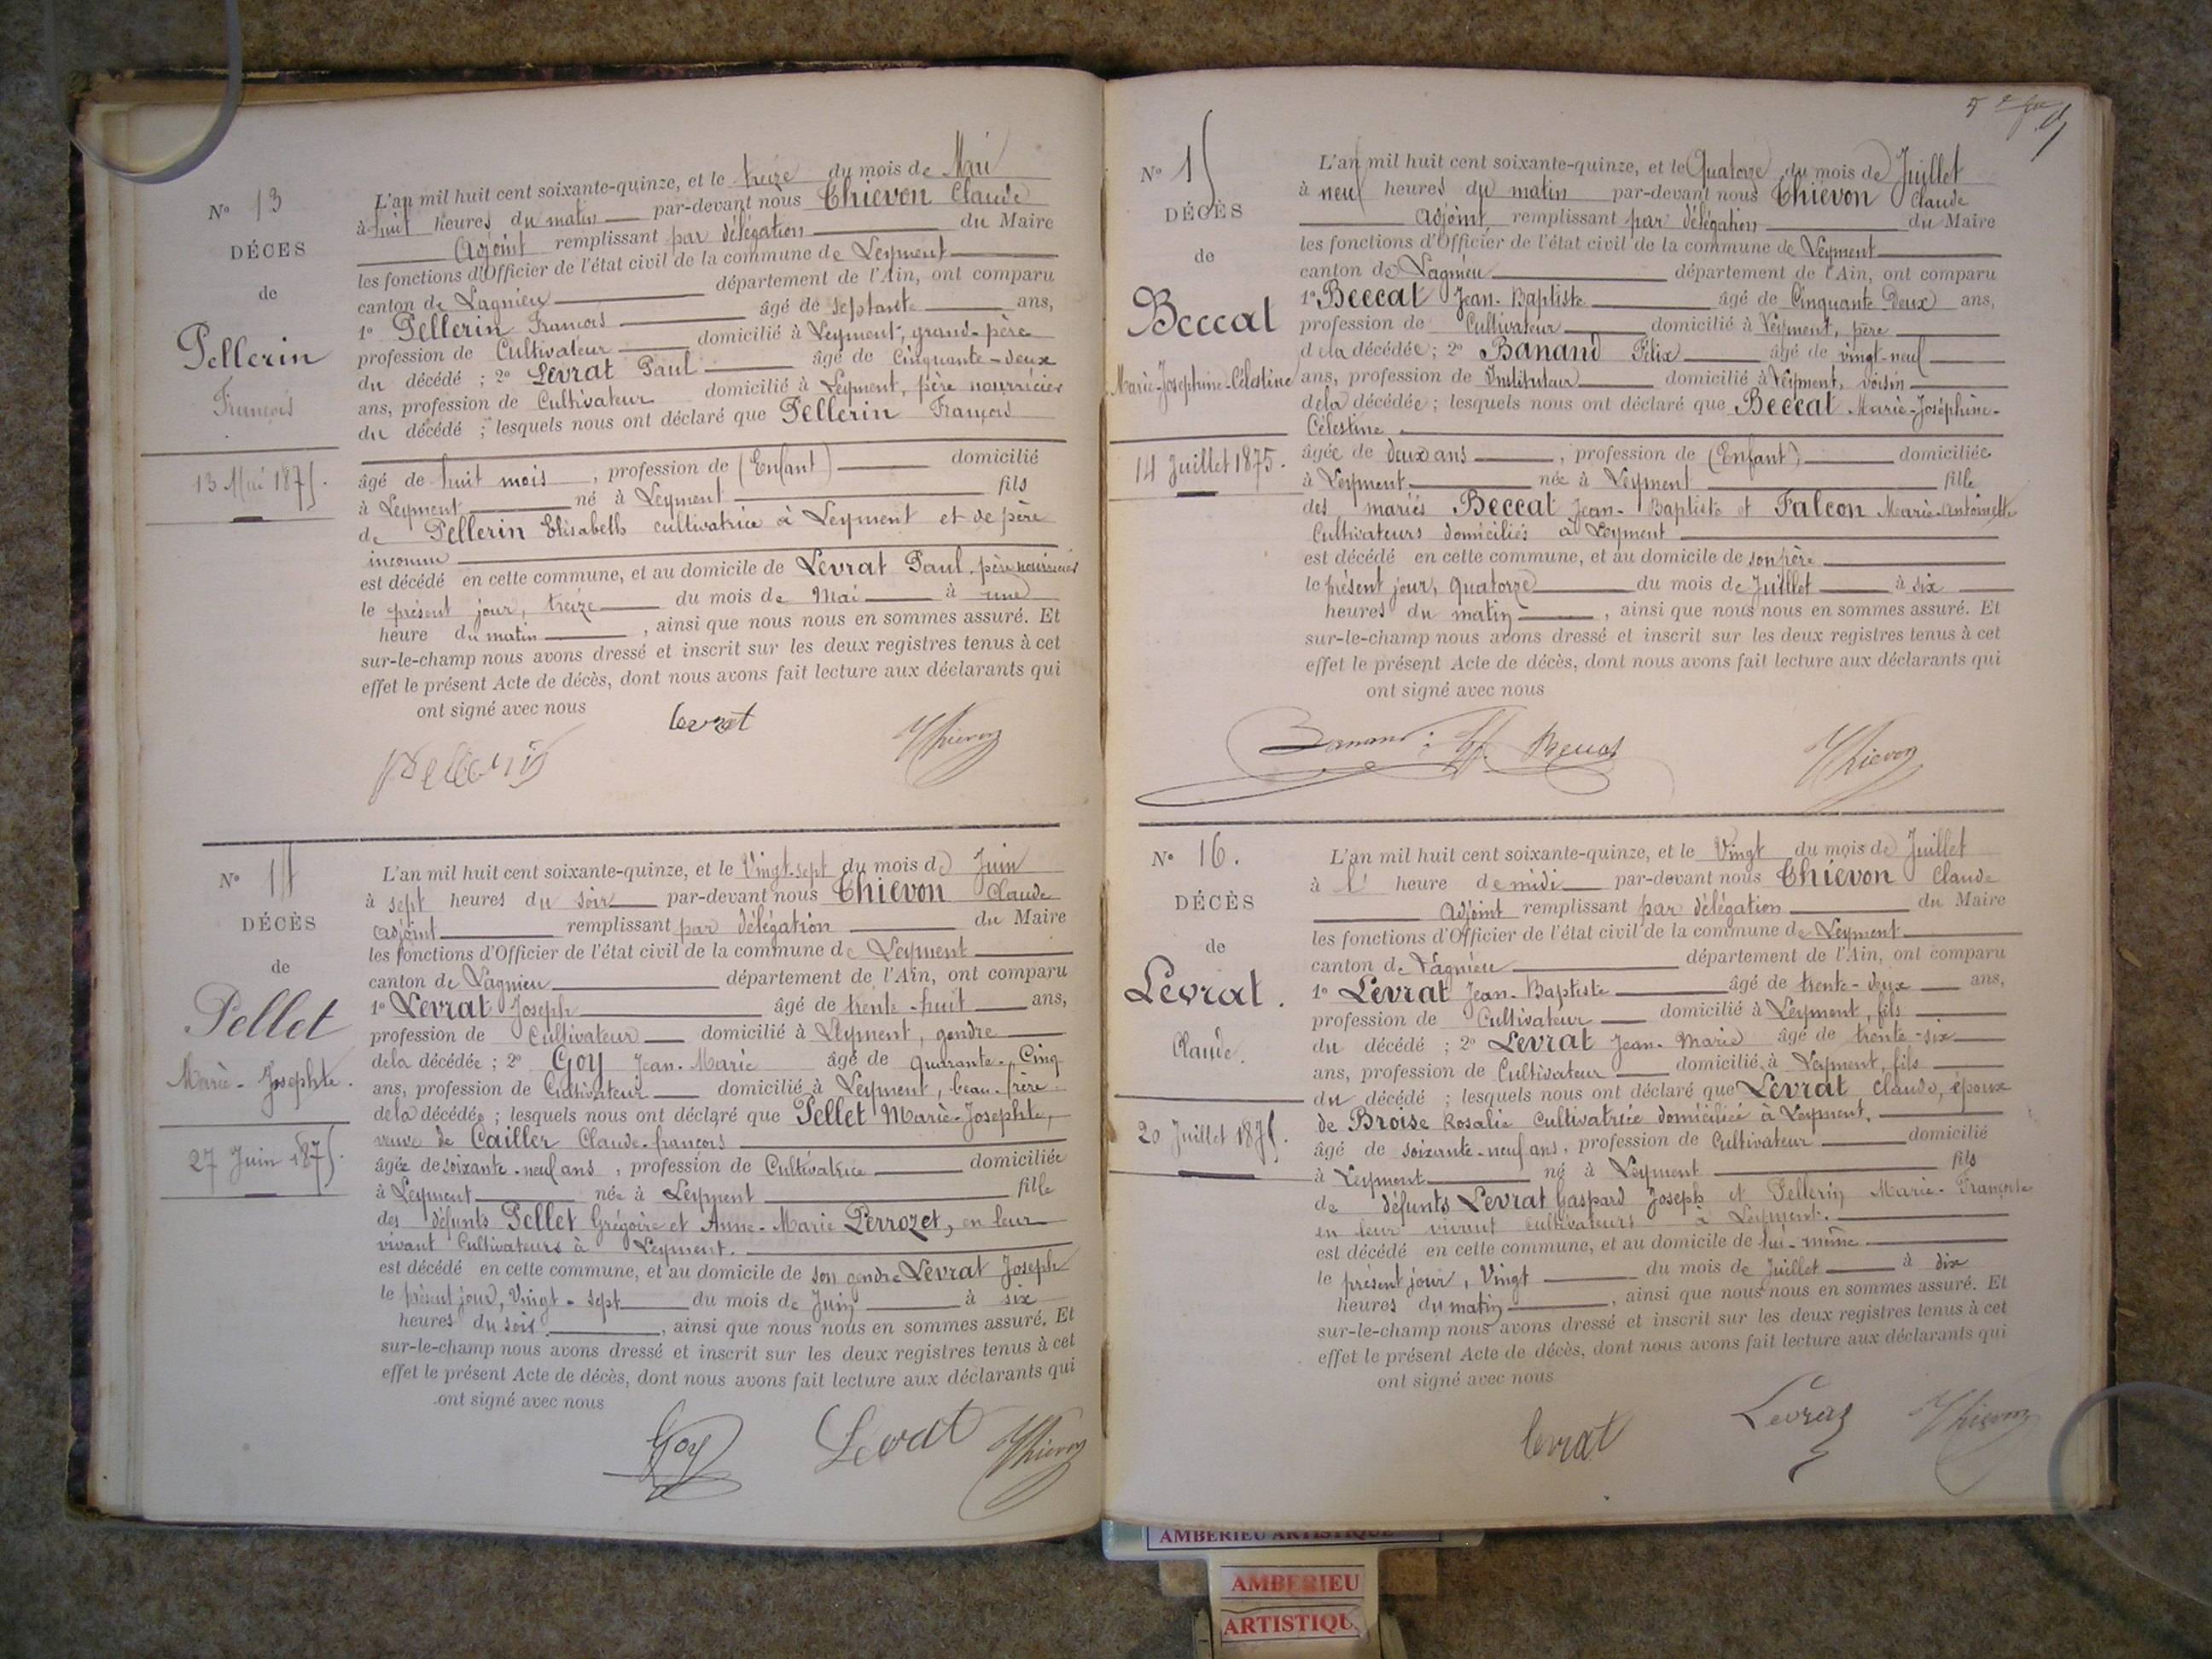 N° 13
DÉCES
de
Pellerin
François
13 Mai 1875.
L'an mil huit cent soixante-quinze, et le treize du mois de Mai
à huit heures du matin par-devant nous Thievon Claude
Adjoint remplissant par délégation du Maire
les fonctions d'Officier de l'état civil de la commune de Leyment
canton de Lagnieu département de l'Ain, ont comparu
1° Pellerin François âgé de septante ans,
profession de Cultivateur domicilié à Leyment, grand-père
du décédé ; 2° Levrat Paul âgé de cinquante-deux
ans, profession de Cultivateur domicilié à Leyment, père nourricier
du décédé ; lesquels nous ont déclaré que Pellerin François
âgé de huit mois, profession de (Enfant) domicilié
à Leyment né à Leyment fils
de Pellerin Elisabeth cultivatrice à Leyment et de père
inconnu
est décédé en cette commune, et au domicile de Levrat Paul père nourricier
le présent jour, treize du mois de Mai à une
heure du matin, ainsi que nous nous en sommes assuré. Et
sur-le-champ nous avons dressé et inscrit sur les deux registres tenus à cet
effet le présent Acte de décès, dont nous avons fait lecture aux déclarants qui
ont signé avec nous
levrat
Pellerin
Thievon
N° 14
DÉCÈS
de
Pellet
Marie-Josephte.
27 Juin 1875.
L'an mil huit cent soixante-quinze, et le Vingt-sept du mois de Juin
à sept heures du soir par-devant nous Thievon Claude
adjoint remplissant par délégation du Maire
les fonctions d'Officier de l'état civil de la commune de Leyment
canton de Lagnieu département de l'Ain, ont comparu
1° Levrat Joseph âgé de trente-huit ans,
profession de Cultivateur domicilié à Leyment, gendre
de la décédée ; 2° Goy Jean-Marie âgé de quarante-Cinq
ans, profession de Cultivateur domicilié à Leyment, beau-frère
de la décédée ; lesquels nous ont déclaré que Pellet Marie-Josephte,
veuve de Cailler Claude-françois
âgée de soixante-neuf ans, profession de Cultivatrice domiciliée
à Leyment née à Leyment fille
des défunts Pellet Grégoire et Anne-Marie Perrozet, en leur
vivant Cultivateurs à Leyment.
est décédé en cette commune, et au domicile de son gendre Levrat Joseph
le présent jour, Vingt-sept du mois de Juin à six
heures du soir, ainsi que nous nous en sommes assuré. Et
sur-le-champ nous avons dressé et inscrit sur les deux registres tenus à cet
effet le présent Acte de décès, dont nous avons fait lecture aux déclarants qui
ont signé avec nous
Goy Levrat Thievon
N° 15
DÉCÈS
de
Beccat
Marie-Joséphine-Célestine
14 Juillet 1875.
L'an mil huit cent soixante-quinze, et le Quatorze du mois de Juillet
à neuf heures du matin par-devant nous Thievon Claude
Adjoint remplissant par délégation du Maire
les fonctions d'Officier de l'état civil de la commune de Leyment
canton de Lagnieu département de l'Ain, ont comparu
1° Beccat Jean-Baptiste âgé de Cinquante Deux ans,
profession de Cultivateur domicilié à Leyment, père
de la décédée ; 2° Banand Félix âgé de vingt-neuf
ans, profession de Instituteur domicilié à Leyment, voisin
de la décédée ; lesquels nous ont déclaré que Beccat Marie-Joséphine-
Célestine
âgée de deux ans, profession de (Enfant) domiciliée
à Leyment née à Leyment fille
des mariés Beccat Jean-Baptiste et Falcon Marie-Antoinette
Cultivateurs domiciliés à Leyment
est décédé en cette commune, et au domicile de son père
le présent jour, quatorze du mois de Juillet à six
heures du matin, ainsi que nous nous en sommes assuré. Et
sur-le-champ nous avons dressé et inscrit sur les deux registres tenus à cet
effet le présent Acte de décès, dont nous avons fait lecture aux déclarants qui
ont signé avec nous
Banand Thievon
N° 16.
DÉCÈS
de
Levrat.
Claude.
20 Juillet 1875.
L'an mil huit cent soixante-quinze, et le Vingt du mois de Juillet
à l' heure de midi par-devant nous Thievon Claude
Adjoint remplissant par délégation du Maire
les fonctions d'Officier de l'état civil de la commune de Leyment
canton de Lagnieu département de l'Ain, ont comparu
1° Levrat Jean-Baptiste âgé de trente-deux ans,
profession de Cultivateur domicilié à Leyment, fils
du décédé ; 2° Levrat Jean-Marie âgé de trente-six
ans, profession de Cultivateur domicilié à Leyment, fils
du décédé ; lesquels nous ont déclaré que Levrat Claude, époux
de Broise Rosalie cultivatrice domiciliée à Leyment.
âgé de soixante-neuf ans, profession de Cultivateur domicilié
à Leyment né à Leyment fils
de défunts Levrat Gaspard Joseph et Pellerin Marie-Françoise
en leur vivant cultivateurs à Leyment.
est décédé en cette commune, et au domicile de lui-même
le présent jour, Vingt du mois de Juillet à dix
heures du matin, ainsi que nous nous en sommes assuré. Et
sur-le-champ nous avons dressé et inscrit sur les deux registres tenus à cet
effet le présent Acte de décès, dont nous avons fait lecture aux déclarants qui
ont signé avec nous
levrat Levrat Thievon
AMBERIEU ARTISTIQUE
AMBERIEU
ARTISTIQU